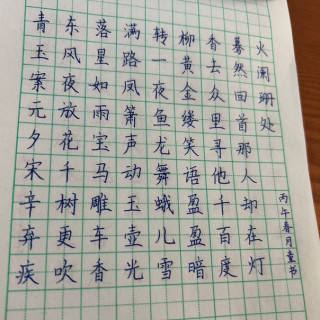 青玉案元夕宋辛弃疾
东风夜放花千树更吹
落星如雨宝马雕车香
满路凤箫声动玉壶光
转一夜鱼龙舞蛾儿雪
柳黄金缕笑语盈盈暗
香去众里寻他千百度
蓦然回首那人却在灯
火阑珊处
丙午春月童书